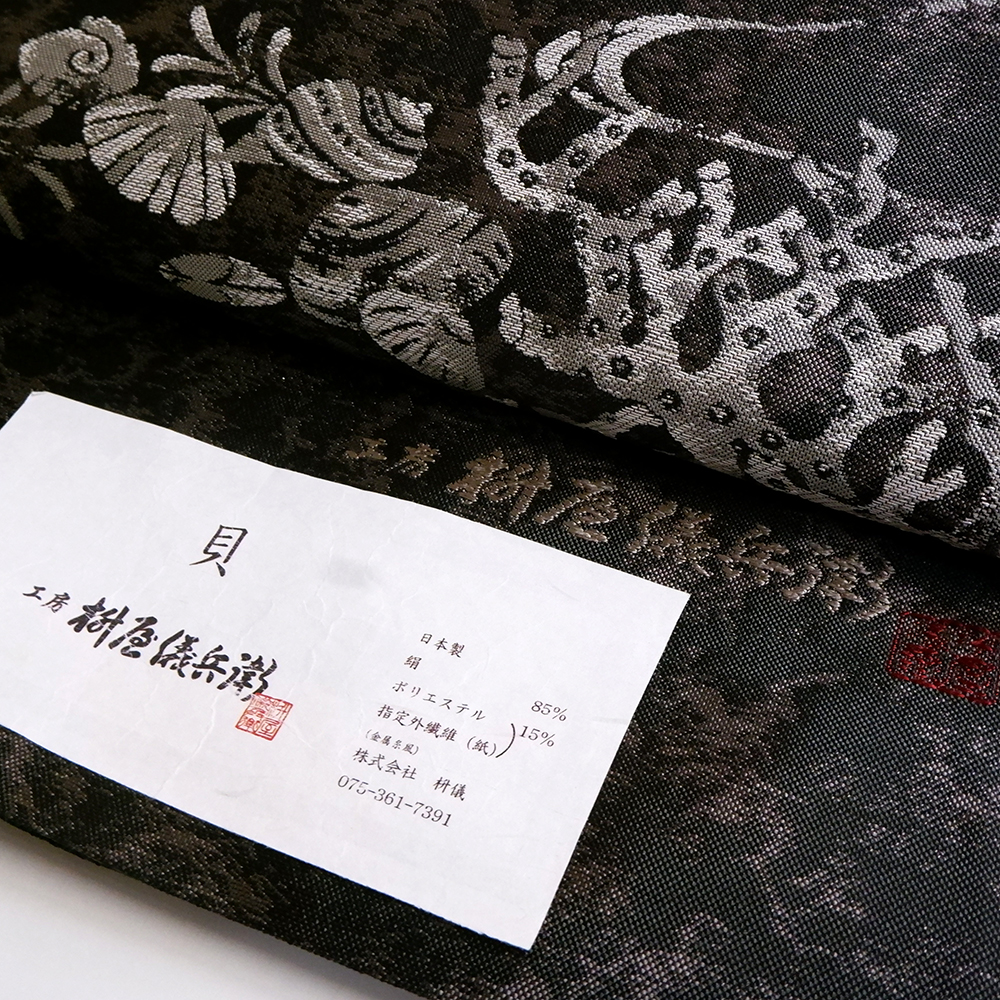 工房 枡屋儀兵衛
貝
工房 枡屋儀兵衛
日本製
絹 85%
ポリエステル
指定外繊維（紙） 15%
（金属糸風）
株式会社 枡儀
075-361-7391